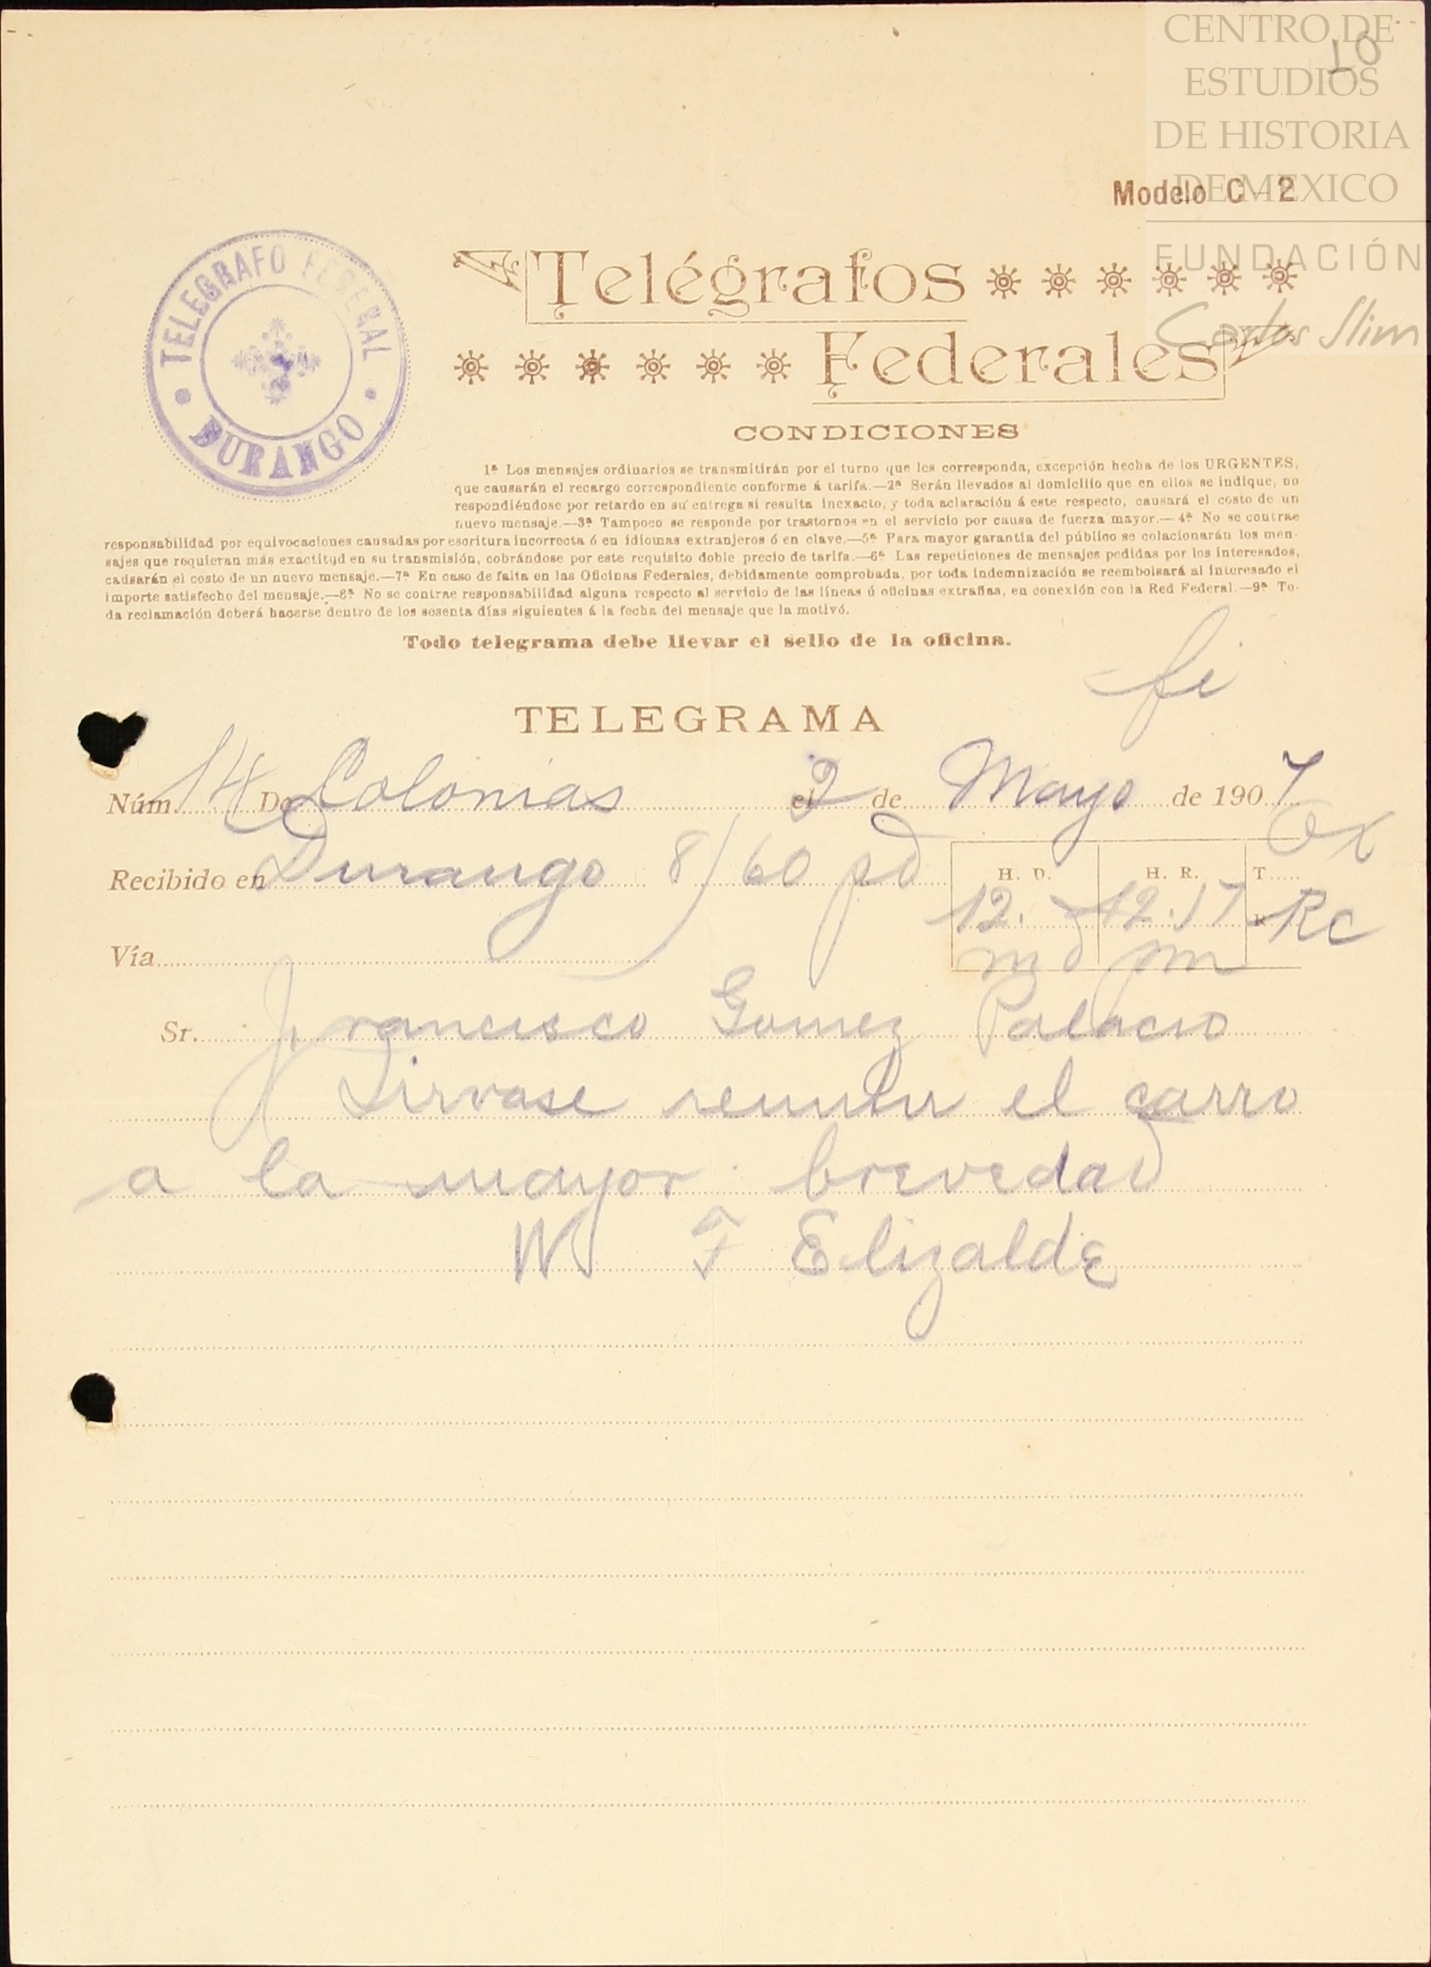 CENTRO DE
ESTUDIOS
DE HISTORIA
DE MEXICO
FUNDACIÓN
Carlos Slim
10
Modelo C - 2
TELEGRAFO FEDERAL
DURANGO
Telégrafos
Federales
CONDICIONES
1ª Los mensajes ordinarios se transmitirán por el turno que les corresponda, excepción hecha de los URGENTES,
que causarán el recargo correspondiente conforme á tarifa.—2ª Serán llevados al domicilio que en ellos se indique, no
respondiéndose por retardo en su entrega si resulta inexacto, y toda aclaración á este respecto, causará el costo de un
nuevo mensaje.—3ª Tampoco se responde por trastornos en el servicio por causa de fuerza mayor.—4ª No se contrae
responsabilidad por equivocaciones causadas por escritura incorrecta ó en idiomas extranjeros ó en clave.—5ª Para mayor garantía del público se colacionarán los men-
sajes que requieran más exactitud en su transmisión, cobrándose por este requisito doble precio de tarifa.—6ª Las repeticiones de mensajes pedidas por los interesados,
causarán el costo de un nuevo mensaje.—7ª En caso de falta en las Oficinas Federales, debidamente comprobada, por toda indemnización se reembolsará al interesado el
importe satisfecho del mensaje.—8ª No se contrae responsabilidad alguna respecto al servicio de las líneas ú oficinas extrañas, en conexión con la Red Federal.—9ª To-
da reclamación deberá hacerse dentro de los sesenta días siguientes á la fecha del mensaje que la motivó.
Todo telegrama debe llevar el sello de la oficina.
TELEGRAMA
Núm 14 De Colonias el 2 de Mayo de 1907
Recibido en Durango 8/60 pd H. D. H. R. T.
12. 12.17 R Rc
Vía md pm
Sr. Francisco Gomez Palacio
Sirvase remitir el carro
a la mayor brevedad
W F Elizalde